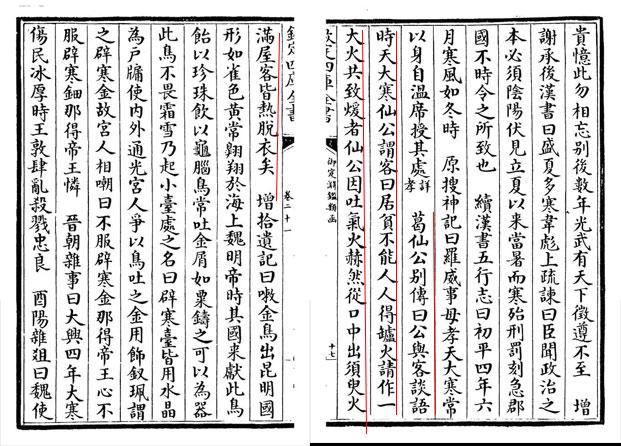 貴憶此勿相忘别後數年光武有天下徵遵不至　增
謝承後漢書曰盛夏多寒韋彪上疏諫曰臣聞政治之
本必須陰陽伏見立夏以來當暑而寒殆刑罰刻急郡
國不時令之所致也　續漢書五行志曰初平四年六
月寒風如冬時　原搜神記曰羅威事母孝天大寒常
以身自温席授其處詳孝　葛仙公别傳曰公與客談語
時天大寒仙公謂客曰居貧不能人人得爐火請作一
大火共致煖者仙公因吐氣火赫然從口中出須臾火
御定淵鑑類函
十七
欽定四庫全書
卷二十一
滿屋客皆熱脱衣矣　增拾遺記曰嗽金鳥出昆明國
形如雀色黄常翱翔於海上魏明帝時其國來獻此鳥
飴以珍珠飲以龜腦鳥常吐金屑如粟鑄之可以為器
此鳥不畏霜雪乃起小臺處之名曰辟寒臺皆用水晶
為戸牖使内外通光宫人爭以鳥吐之金用飾釵珮謂
之辟寒金故宫人相嘲曰不服辟寒金那得帝王心不
服辟寒鈿那得帝王憐　晉朝雜事曰大興四年大寒
傷民冰厚時王敦肆亂殺戮忠良　酉陽雜俎曰魏使